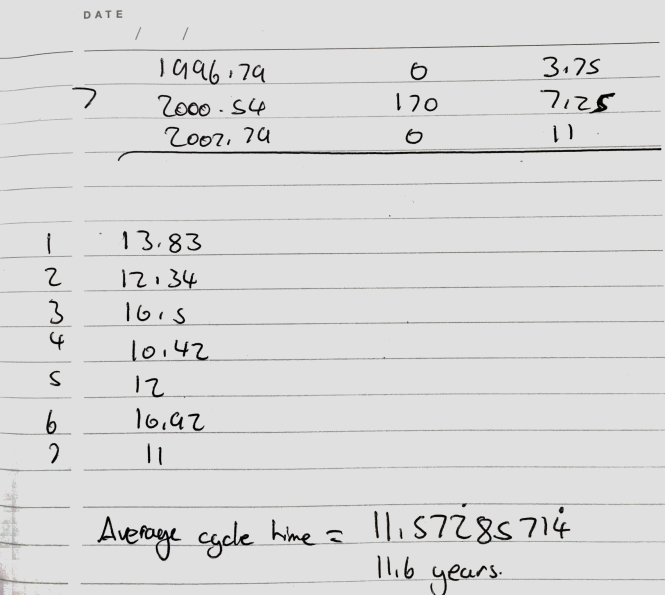 DATE
/ /
1996.79 0 3.75
7 2000.54 170 7.25
2007.79 0 11
1 13.83
2 12.34
3 10.5
4 10.42
5 12
6 10.92
7 11
Average cycle time = 11.572̇85714̇
11.6 years.